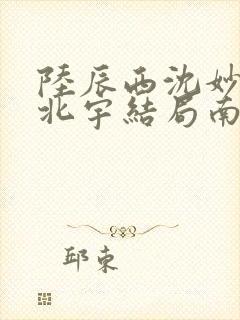 陸辰西沈妙
北宇結局南
邱束